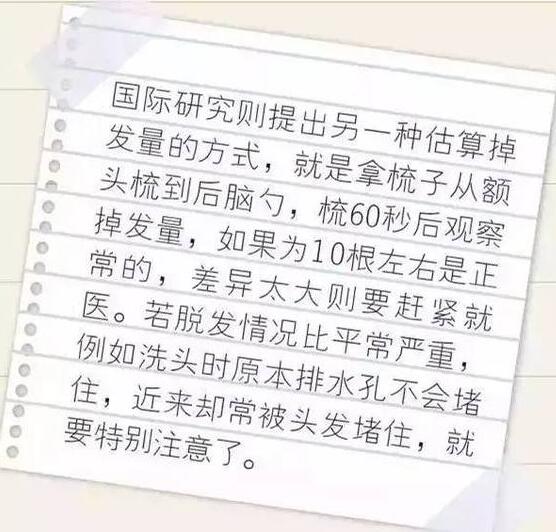 国际研究则提出另一种估算掉
发量的方式，就是拿梳子从额
头梳到后脑勺，梳60秒后观察
掉发量，如果为10根左右是正
常的，差异太大则要赶紧就
医。若脱发情况比平常严重，
例如洗头时原本排水孔不会堵
住，近来却常被头发堵住，就
要特别注意了。